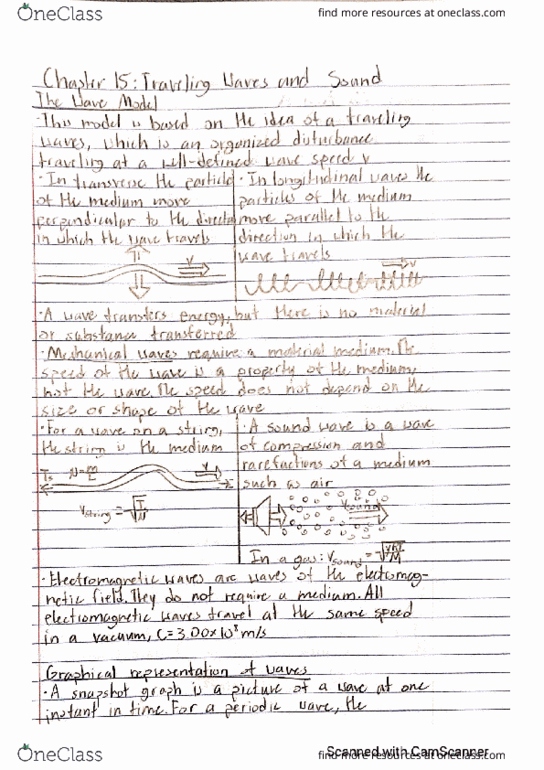 OneClass
find more resources at oneclass.com
Chapter 15: Traveling Waves and Sound
The Wave Model
· This model is based on the idea of a traveling
waves, which is an organized disturbance
traveling at a well-defined wave speed v
· In transverse the particle
of the medium move
perpendicular to the direction
in which the wave travels
· In longitudinal waves the
particles of the medium
move parallel to the
direction in which the
wave travels
v
v
· A wave transfers energy, but there is no material
or substance transferred
· Mechanical waves require a material medium. The
speed of the wave is a property of the medium,
not the wave. The speed does not depend on the
size or shape of the wave
· For a wave on a string,
the string is the medium
Ts
v
Vstring =
· A sound wave is a wave
of compression and
rarefactions of a medium
such as air
Vsound
In a gas: Vsound =
· Electromagnetic waves are waves of the electromag-
netic field. They do not require a medium. All
electromagnetic waves travel at the same speed
in a vacuum, C=3.00x10⁸ m/s
Graphical representation of waves
· A snapshot graph is a picture of a wave at one
instant in time. For a periodic wave, the
OneClass
find more resources at oneclass.com
Scanned with CamScanner